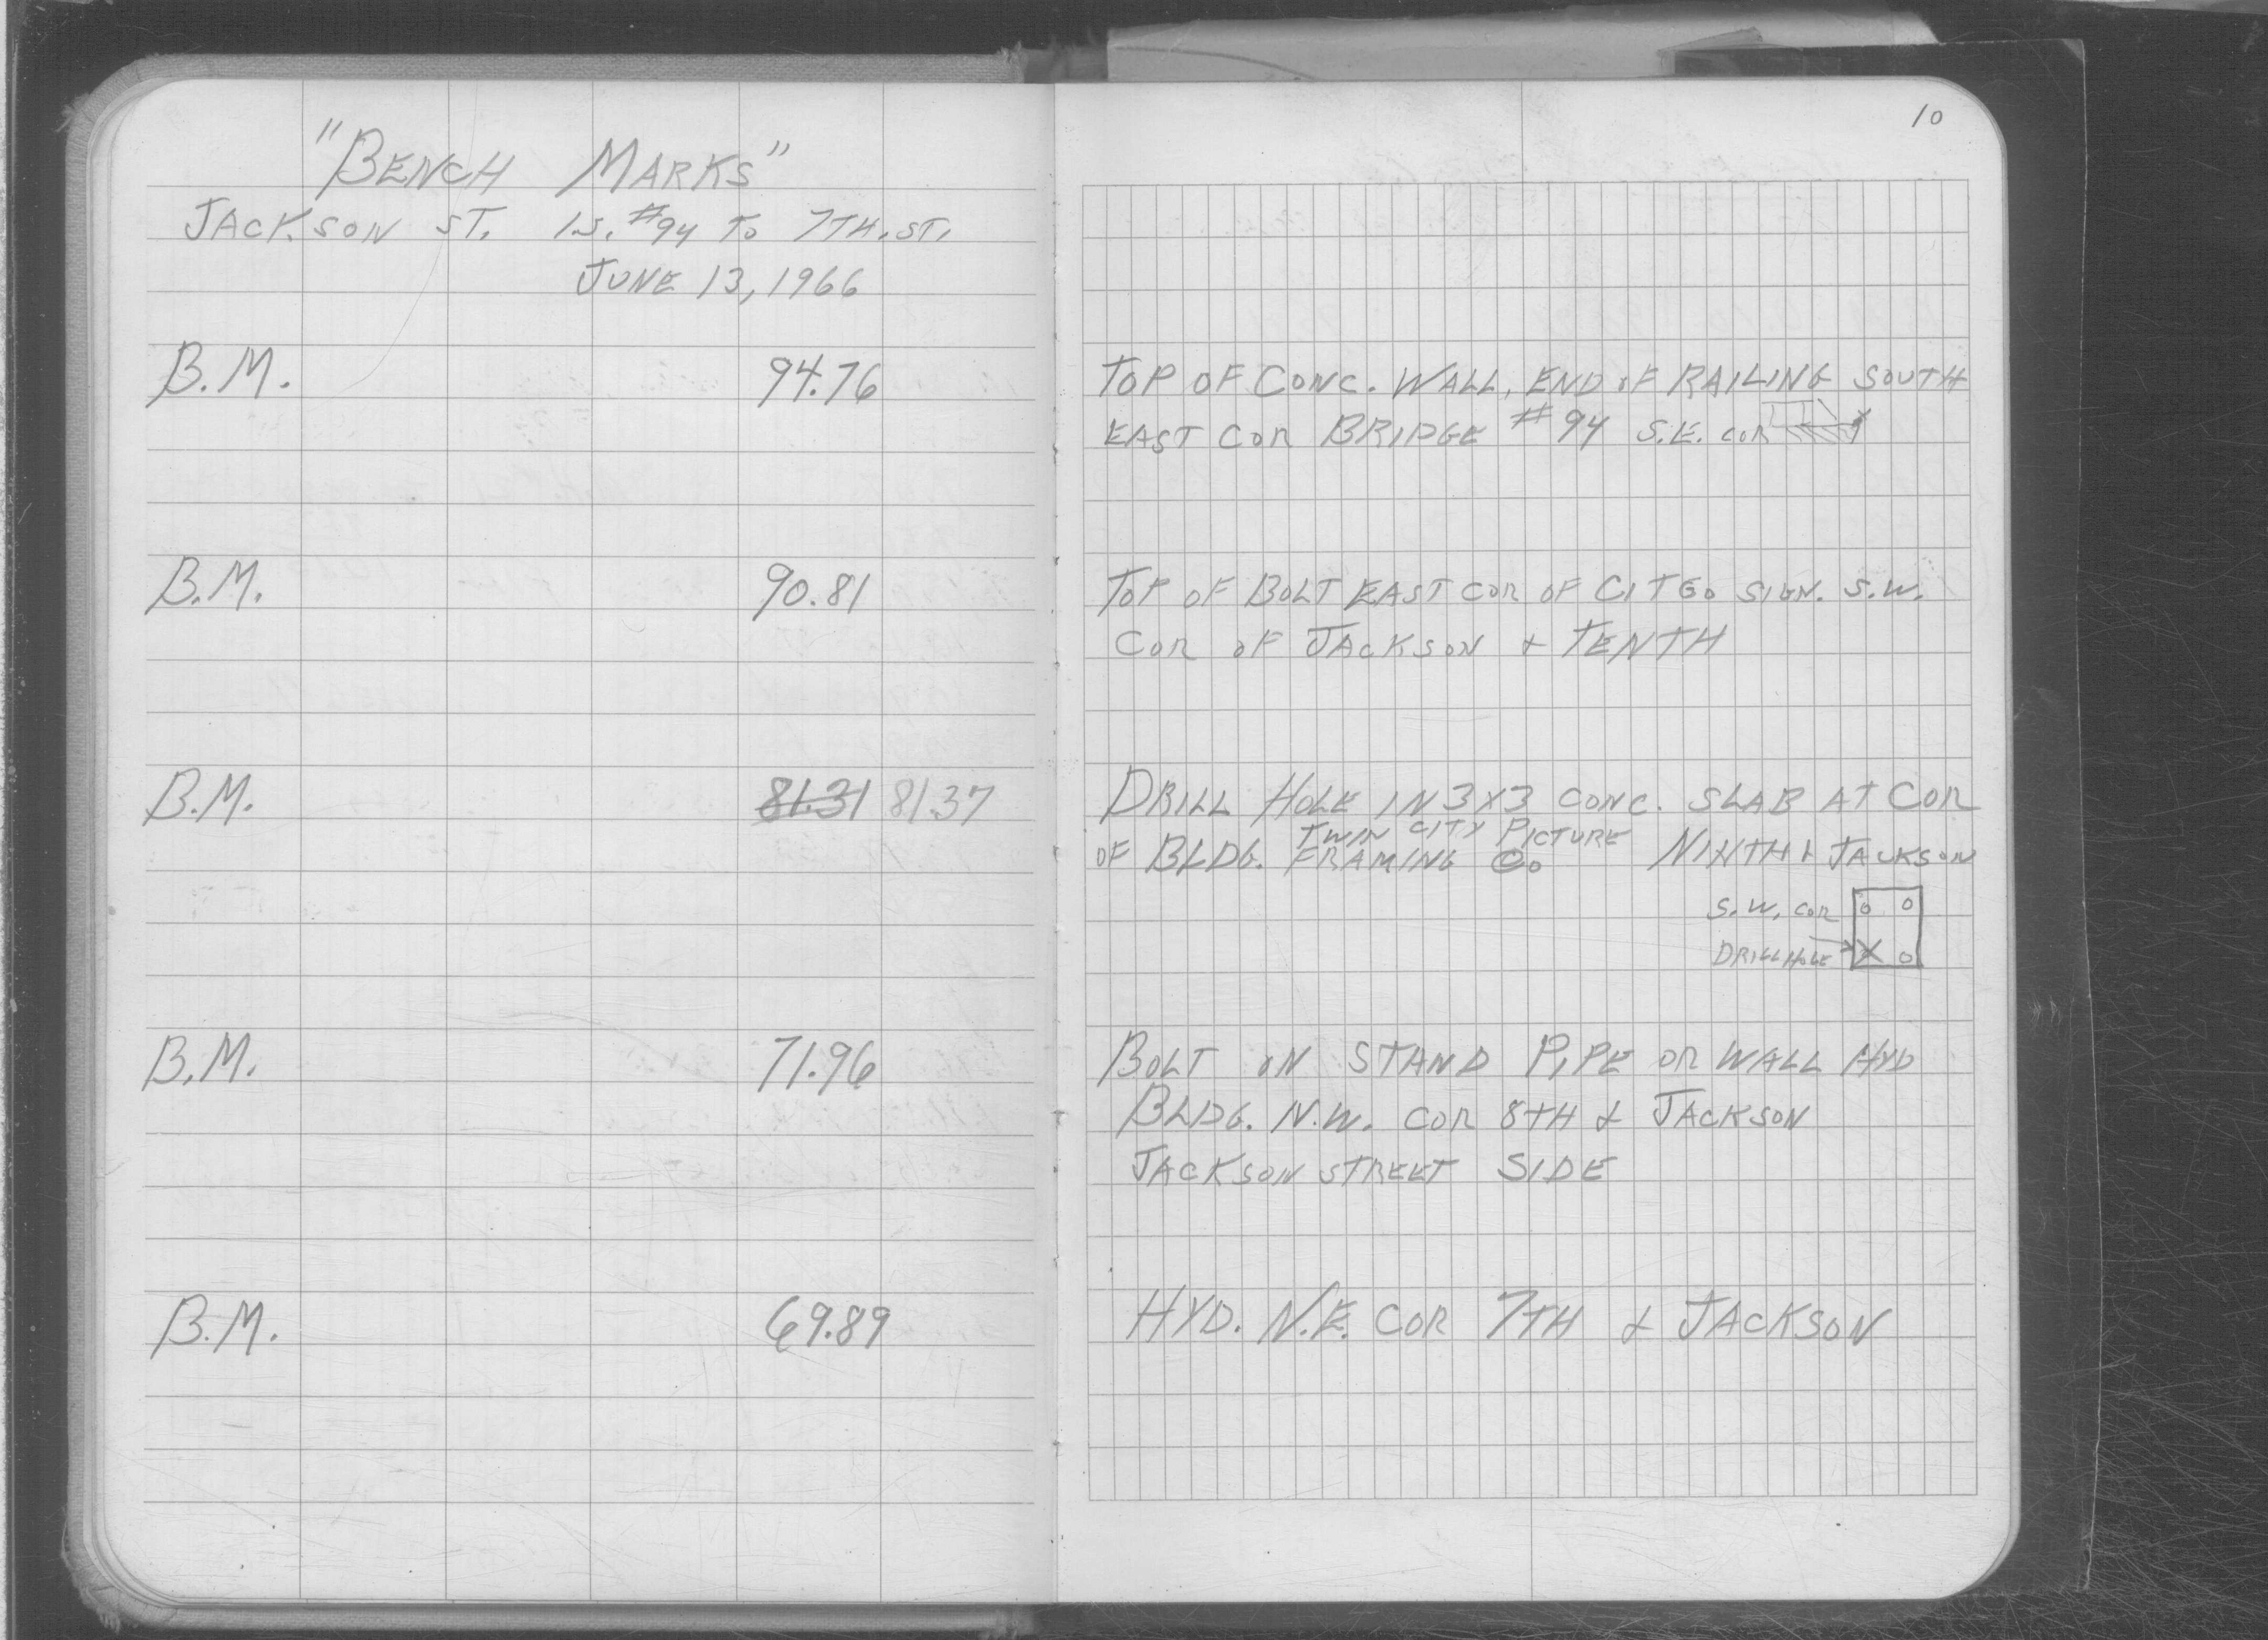 10
"BENCH MARKS"
JACKSON ST. I.S. #94 TO 7TH. ST.
JUNE 13, 1966
B.M. 94.76 TOP OF CONC. WALL, END OF RAILING SOUTH
EAST COR BRIDGE #94 S.E. COR
B.M. 90.81 TOP OF BOLT EAST COR OF CITGO SIGN. S.W.
COR OF JACKSON & TENTH
B.M. 81.31 81.37 DRILL HOLE IN 3X3 CONC. SLAB AT COR
TWIN CITY PICTURE
OF BLDG. FRAMING CO NINTH & JACKSON
S.W. COR
DRILL HOLE
B.M. 71.96 BOLT ON STAND PIPE OR WALL HYD
BLDG. N.W. COR 8TH & JACKSON
JACKSON STREET SIDE
B.M. 69.89 HYD. N.E. COR 7TH & JACKSON